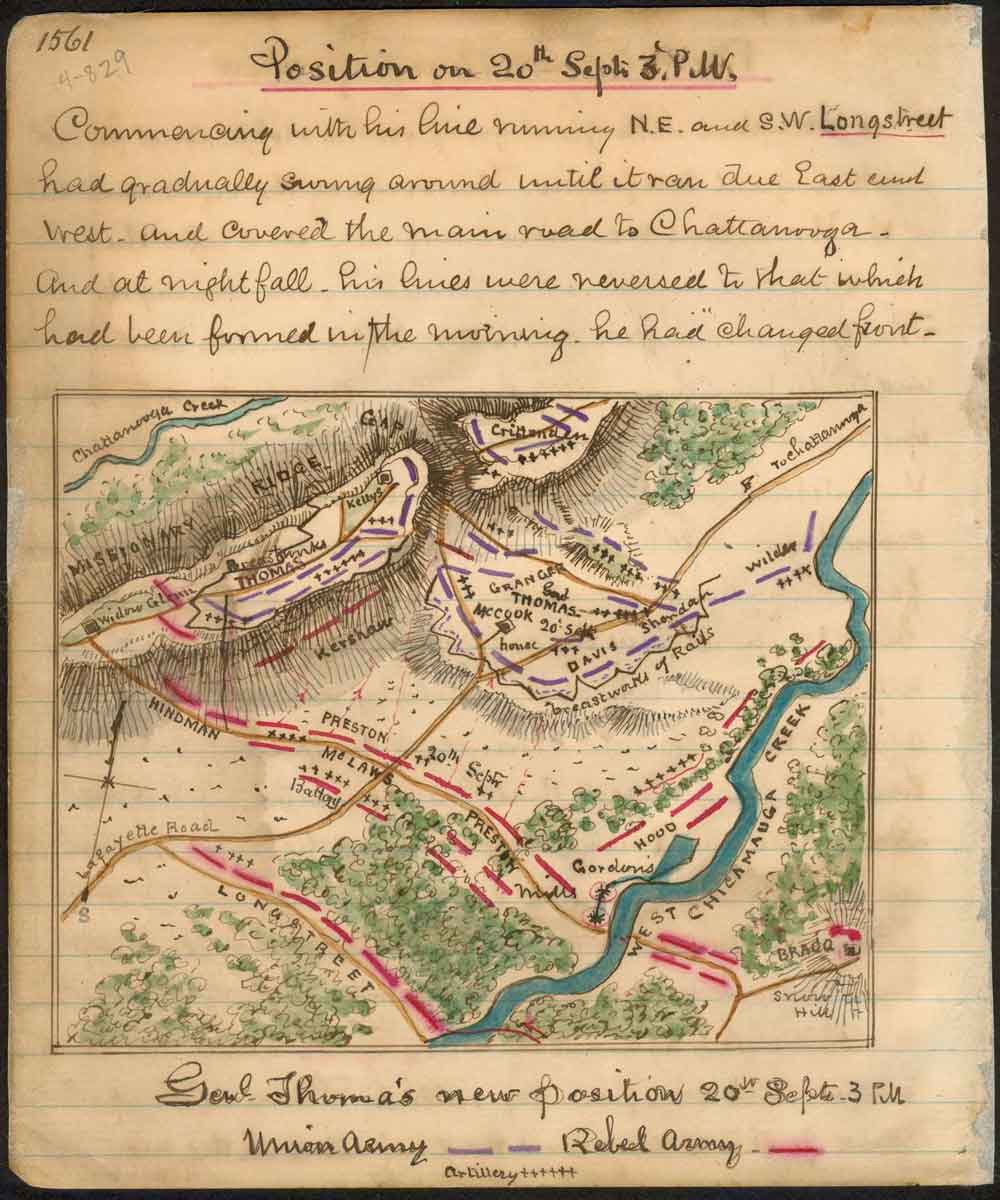 1561
4-829
Position on 20th Sept: 3. P.M.
Commencing with his line running N.E. and S.W. Longstreet
had gradually swung around until it ran due East and
West - and covered the main road to Chattanooga -
And at nightfall - his lines were reversed to that which
had been formed in the morning. he had "changed front -
Chattanooga Creek
GAP
Crittenden
To Chattanooga
MISSIONARY RIDGE
Kellys
Breastworks
THOMAS
Wilder
GRANGER
Genl
THOMAS
McCOOK 20th Sept
Sheridan
Widow Glenn
Kershaw
house
DAVIS
breastworks of Rails
HINDMAN
PRESTON
McLAWS
20th Septr
Battery
PRESTON
HOOD
Lafayette Road
Gordon's
Mills
WEST CHICAMAUGA CREEK
LONGSTREET
BRAGG
Snow
Hill
S
Genl Thomas's new position 20th Sept. 3 PM
Union Army Rebel Army
Artillery ++++++